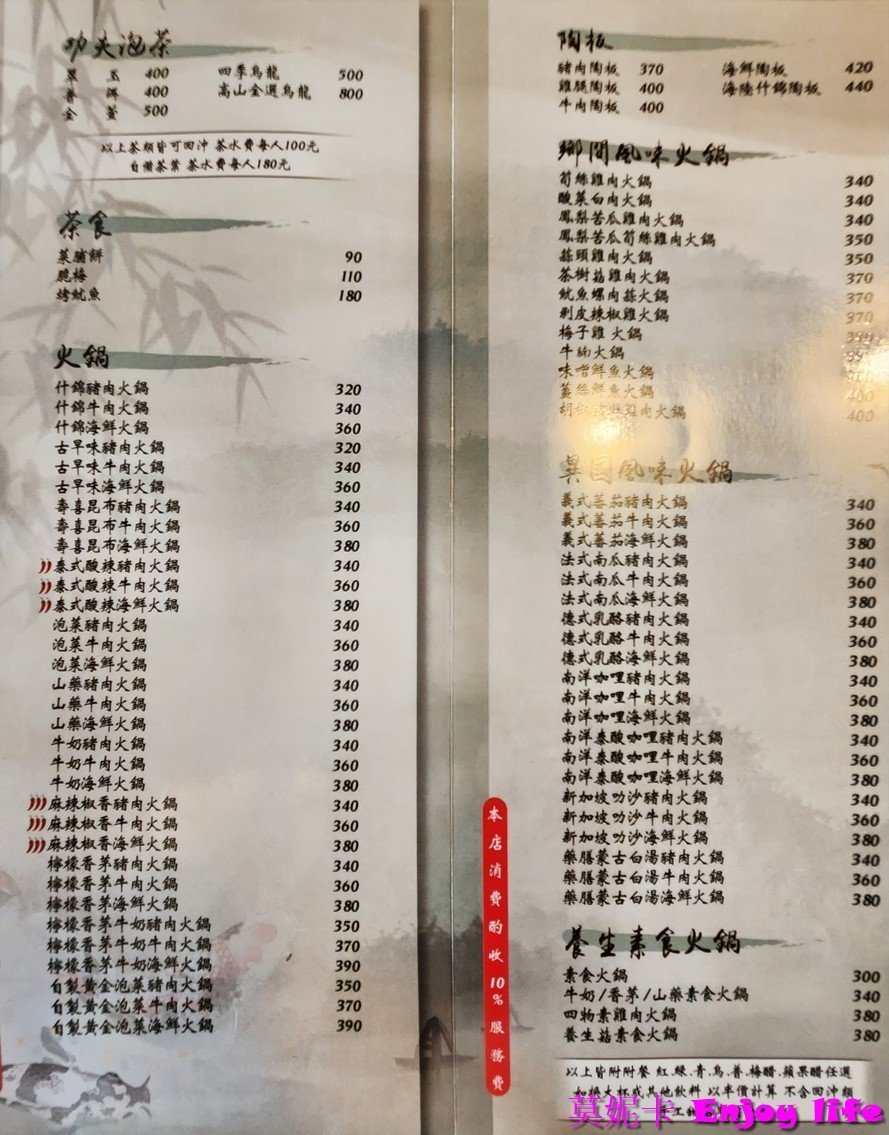 功夫泡茶
翠玉 400 四季烏龍 500
普洱 400 高山金選烏龍 800
金萱 500
以上茶類皆可回沖 茶水費每人100元
自備茶葉 茶水費每人180元
茶食
菜脯餅 90
脆梅 110
烤魷魚 180
火鍋
什錦豬肉火鍋 320
什錦牛肉火鍋 340
什錦海鮮火鍋 360
古早味豬肉火鍋 320
古早味牛肉火鍋 340
古早味海鮮火鍋 360
壽喜昆布豬肉火鍋 340
壽喜昆布牛肉火鍋 360
壽喜昆布海鮮火鍋 380
泰式酸辣豬肉火鍋 340
泰式酸辣牛肉火鍋 360
泰式酸辣海鮮火鍋 380
泡菜豬肉火鍋 340
泡菜牛肉火鍋 360
泡菜海鮮火鍋 380
山藥豬肉火鍋 340
山藥牛肉火鍋 360
山藥海鮮火鍋 380
牛奶豬肉火鍋 340
牛奶牛肉火鍋 360
牛奶海鮮火鍋 380
麻辣椒香豬肉火鍋 340
麻辣椒香牛肉火鍋 360
麻辣椒香海鮮火鍋 380
檸檬香茅豬肉火鍋 340
檸檬香茅牛肉火鍋 360
檸檬香茅海鮮火鍋 380
檸檬香茅牛奶豬肉火鍋 350
檸檬香茅牛奶牛肉火鍋 370
檸檬香茅牛奶海鮮火鍋 390
自製黃金泡菜豬肉火鍋 350
自製黃金泡菜牛肉火鍋 370
自製黃金泡菜海鮮火鍋 390
本店消費酌收10%服務費
陶板
豬肉陶板 370 海鮮陶板 420
雞腿陶板 400 海陸什錦陶板 440
牛肉陶板 400
鄉間風味火鍋
筍絲雞肉火鍋 340
酸菜白肉火鍋 340
鳳梨苦瓜雞肉火鍋 340
鳳梨苦瓜筍絲雞肉火鍋 350
蒜頭雞肉火鍋 350
茶樹菇雞肉火鍋 370
魷魚螺肉蒜火鍋 370
剝皮辣椒雞火鍋 370
梅子雞 火鍋
牛腩火鍋
味噌鮮魚火鍋
薑絲鮮魚火鍋 400
肉火鍋 400
異國風味火鍋
義式蕃茄豬肉火鍋 340
義式蕃茄牛肉火鍋 360
義式蕃茄海鮮火鍋 380
法式南瓜豬肉火鍋 340
法式南瓜牛肉火鍋 360
法式南瓜海鮮火鍋 380
德式乳酪豬肉火鍋 340
德式乳酪牛肉火鍋 360
德式乳酪海鮮火鍋 380
南洋咖哩豬肉火鍋 340
南洋咖哩牛肉火鍋 360
南洋咖哩海鮮火鍋 380
南洋泰酸咖哩豬肉火鍋 340
南洋泰酸咖哩牛肉火鍋 360
南洋泰酸咖哩海鮮火鍋 380
新加坡叻沙豬肉火鍋 340
新加坡叻沙牛肉火鍋 360
新加坡叻沙海鮮火鍋 380
藥膳蒙古白湯豬肉火鍋 340
藥膳蒙古白湯牛肉火鍋 360
藥膳蒙古白湯海鮮火鍋 380
養生素食火鍋
素食火鍋 300
牛奶/香茅/山藥素食火鍋 340
四物素雞肉火鍋 380
養生菇素食火鍋 380
以上皆附附餐 紅.綠.青.烏.普.梅醋.蘋果醋任選
加換大杯或其他飲料 以半價計算 不含回沖類
莫妮卡 Enjoy life